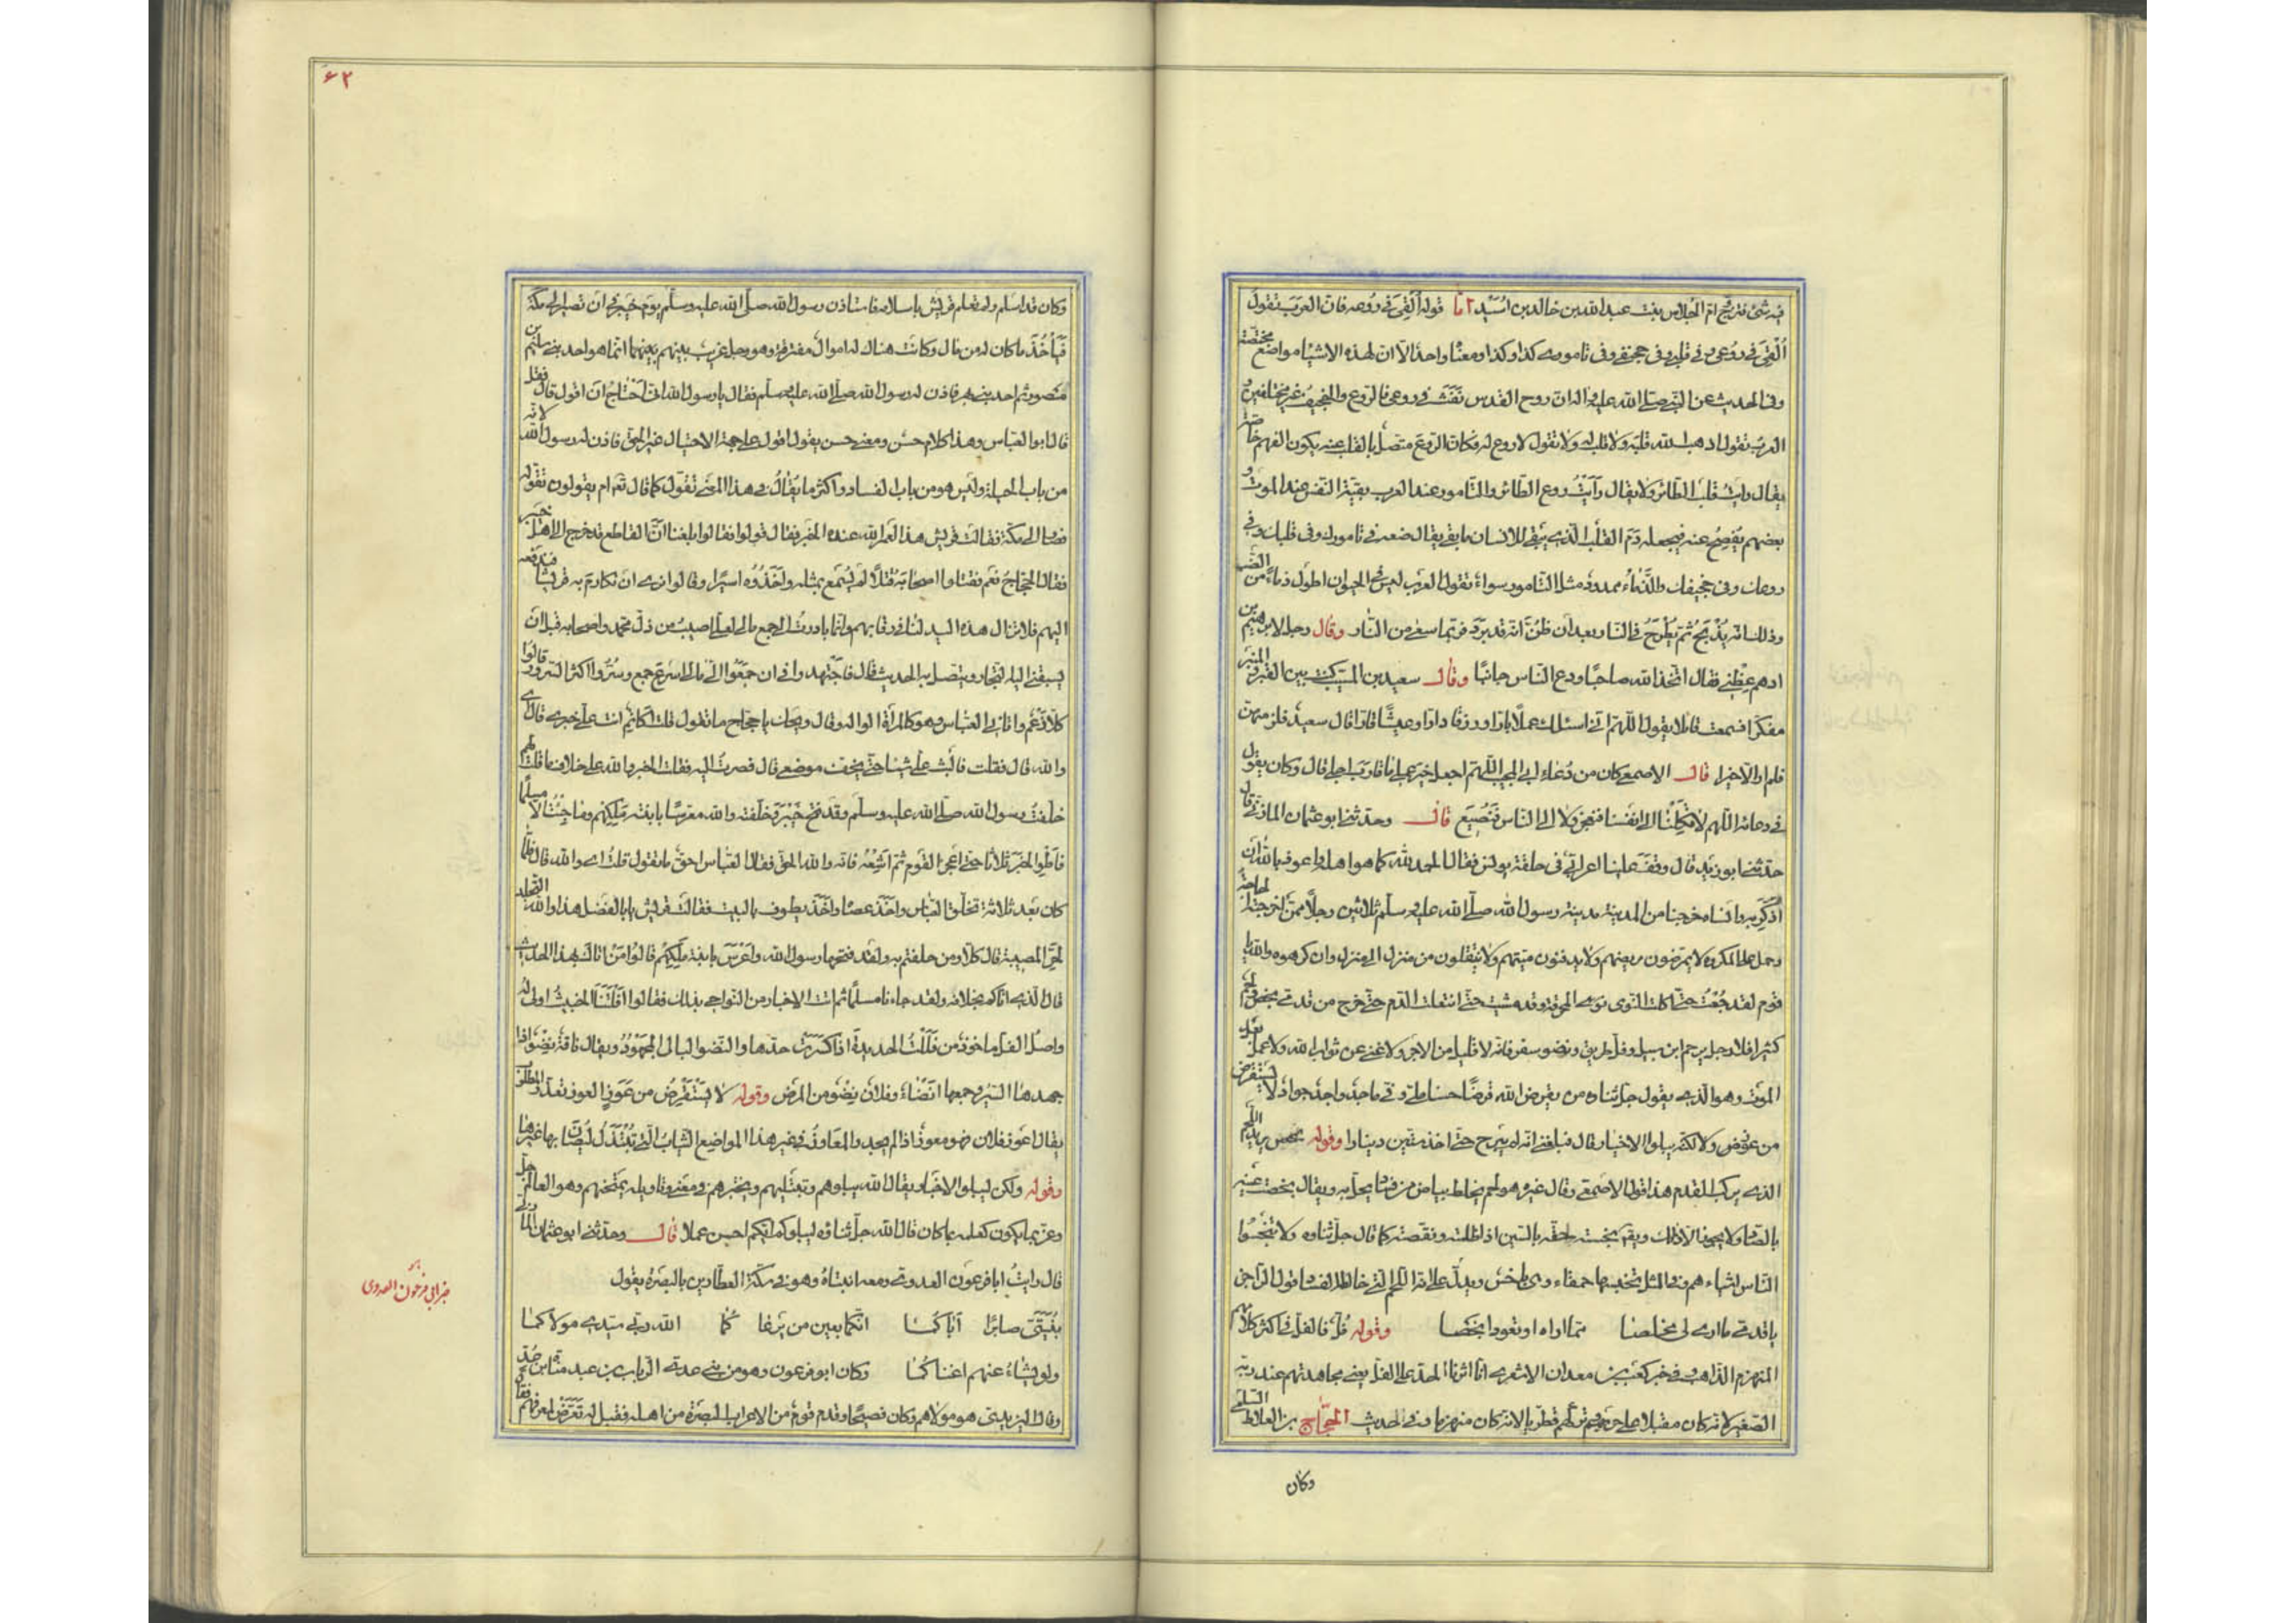 فيه شئ فتزوج ام الجلاس بنت عبدالله بن خالد بن اسيد اما قوله القى فى روعه فان العرب تقول
القى فى روعى وفى قلبى وفى جخيفى وفى تامورى كذا وكذا ومعناه واحد الا ان لهذه الاشياء مواضع مختصة
وفى الحديث عن النبى صلى الله عليه واله ان روح القدس نفث فى روعى فالروع والجخيف غير مختلفين و
العرب تقول اذهب الله قلبه ولا قلب له ولا تقول لا روع له فكان الروع متصل بالقلب عنه يكون الفهم خاصة
يقال رايت قلب الطائر ولا يقال رايت روع الطائر والتامور عند العرب بقية النفس عند الموت و
بعضهم يفصح عنه فيجعله دم القلب الذى يبقى للانسان ما بقى يقال ضعه فى تامورك وفى قلبك وفى
روعك وفى جخيفك والذماء ممدود مثل التامور سواء تقول العرب ليس فى الحيوان اطول ذماء من الضب
وذلك انه يذبح ثم يطرح فى النار بعد ان ظن انه قد برد فربما سعى من النار وقال رجل لابرهيم بن
ادهم عظنى فقال اتخذ الله صاحبا ودع الناس جانبا وقال سعيد بن المسيب كنت بين القبر والمنبر
مفكرا فسمعت قائلا يقول اللهم انى اسئلك عملا بارا ورزقا دارا وعيشا قارا قال سعيد فلزمتهن
فلم ار الا خيرا قال الاصمعى كان من دعاء ابى المجيب اللهم اجعل خير عملى ما قارب اجلى قال وكان يقول
فى دعائه اللهم لا تكلنا الى انفسنا فنعجز ولا الى الناس فنضيع قال وحدثنى ابو عثمان المازنى قال
حدثنى ابو زيد قال وقف علينا اعرابى فى حلقة يونس فقال الحمد لله كما هو اهله واعوذ بالله ان
اذكر به وانساه خرجنا من المدينة مدينة رسول الله صلى الله عليه وسلم ثلاثين رجلا ممن اخرجته الحاجة
وحمل على المكروه لا يمرضون مريضهم ولا يدفنون ميتهم ولا ينتقلون من منزل الى منزل وان كرهوه والله يا
قوم لقد جعت حتى اكلت النوى المحرق وقد مشيت حتى انتعلت الدم حتى خرج من قدمى بخص ولحم
كثير افلا رجل يرحم ابن سبيل وفل طريق ونضو سفر فانه لا قليل من الاجر ولا غنى عن ثواب الله ولا عمل بعد
الموت وهو الذى يقول جل ثناؤه من يقرض الله قرضا حسنا ملى وفى ماجد واجد جواد لا يستقرض
من عوز ولكنه يبلو الاخيار قال فبلغنى انه لم يبرح حتى اخذ ستين دينارا وقوله بخص يريد اللحم
الذى يركب القدم هذا قول الاصمعى وقال غيره هو لحم يخالط بياض من فساد يحل به ويقال بخصت عينه
بالصاد ولا يجوز الا ذلك ويقال بخسته حقه بالسين اذا ظلمته ونقصته كما قال جل ثناؤه ولا تبخسوا
الناس اشياءهم وفى المثل تحسبها حمقاء وهى باخس ويدل على انه اللحم الذى خالطه الفساد قول الراجز
يا قدمى ما ارى لى مخلصا مما اراه او تعودا بخصا وقوله فل فالفل فى اكثر كلامهم
المنهزم الذاهب وفى خبر كعب بن معدان الاشقرى انا اثرنا الحد على الفل يعنى مجاهدتهم عند ربه
الصغير لانه كان مقبلا على حربهم وتركهم قطريا لانه كان منهزما وفى حديث الحجاج بن العلاط السلمى
وكان
٦٢
وكان قد اسلم ولم تعلم قريش باسلامه فاستاذن رسول الله صلى الله عليه وسلم يوم خيبر فى ان تصير الى مكة
فيأخذ ما كان له من مال وكانت هناك له اموال متفرقة وهو رجل غريب بينهم انما هو احد بنى سليم بن
منصور ثم احد بنى بهز فاذن له رسول الله صلى الله عليه وسلم فقال يا رسول الله انى احتاج ان اقول قال فقل
قال ابو العباس وهذا كلام حسن ومعنى حسن يقول اقول على جهة الاحتيال غير الحق فاذن له رسول الله لانه
من باب الحيلة وليس هو من باب الفساد واكثر ما يقال فى هذا المعنى تقول كما قال تع ام يقولون تقوله
فصار الى مكة فقالت قريش هذا لعمر الله عنده الخبر فقال قولوا فقالوا بلغنا ان القاطع قد خرج الى اهل خيبر
فقال الحجاج نعم فقتلوا اصحابه قتلا لم يسمع بمثله واخذوه اسيرا وقالوا نرى ان نكارم به قريشا فندفعه
اليهم فلا تزال هذه اليد لنا فى رقابهم وانما بادرت لجمع مالى لعلى اصيب من فل محمد واصحابه قبل ان
يسبقنى اليه التجار ويتصل بهم الحديث قال فاجتهدوا فى ان جمعوا الى مالى اسرع جمع وسروا اكثر السرور وقالوا
كلا رغم واتانى العباس وهو كالمراة الواله وقال ويحك يا حجاج ما تقول قلت اكاتم انت على خبرى قال اى
والله قال فقلت فالبث على شيئا حتى يخف موضعى قال فصرت اليه فقلت الخبر والله على خلاف ما قلت لهم
خلفت رسول الله صلى الله عليه وسلم وقد فتح خيبر وخلفته والله معرسا بابنة ملكهم وما جئت الا مسلما
فاطو الخبر ثلاثا حتى اعجز القوم ثم اشعه فانه والله الحق فقال العباس احق ما تقول قلت اى والله قال فلما
كان بعد ثلاثة تخلق العباس واخذ عصاه واخذ يطوف بالبيت فقالت قريش يابا الفضل هذا والله التجلد
لحر المصيبة قال كلا ومن حلفتم به ولقد فتحها رسول الله واعرس بابنة ملكهم قالوا من اتاك بهذا الحديث
قال الذى اتاكم بخلافه ولقد جاءنا مسلما ثم اتت الاخبار من النواحى بذلك فقالوا افلتنا الخبيث اولى له
واصل الفل ماخوذ من فللت الحديدة اذا كسرت حدها والنضو البالى المجهود ويقال ناقة نضو اذا
جهدها السير وجمعها انضاء وفلان نضو من المرض وقوله لا يستقرض من عوز العوز تعذر المطلوب
يقال اعوز فلان فهو معوز اذا لم يجد والمعاوز فى غير هذا المواضع الثياب التى تبتذل ليصان بها غيرها
وقوله ولكن ليبلو الاخبار يقال الله يبلوهم ويبتليهم ويختبرهم فى معنى وتاويله يمتحنهم وهو العالم جل
وعز بما يكون كعلمه بما كان قال الله جل ثناؤه ليبلوكم ايكم احسن عملا قال وحدثنى ابو عثمان المازنى
قال رايت ابا فرعون العدوى ومعه ابنتاه وهو فى سكة العطارين بالبصرة يقول
بنيتى صابرا اباكما انكما بعين من يراكما الله ربى سيدى مولاكما
ولو يشاء عنهم اغناكما وكان ابو فرعون وهو من بنى عدى الرباب بن عبد مناة بن اد
وقال اليزيدى هو مولاهم وكان فصيحا وقدم قوم من الاعراب البصرة من اهله فقيل له تعرض لمعروفهم فقال
خبر ابى فرعون العدوى